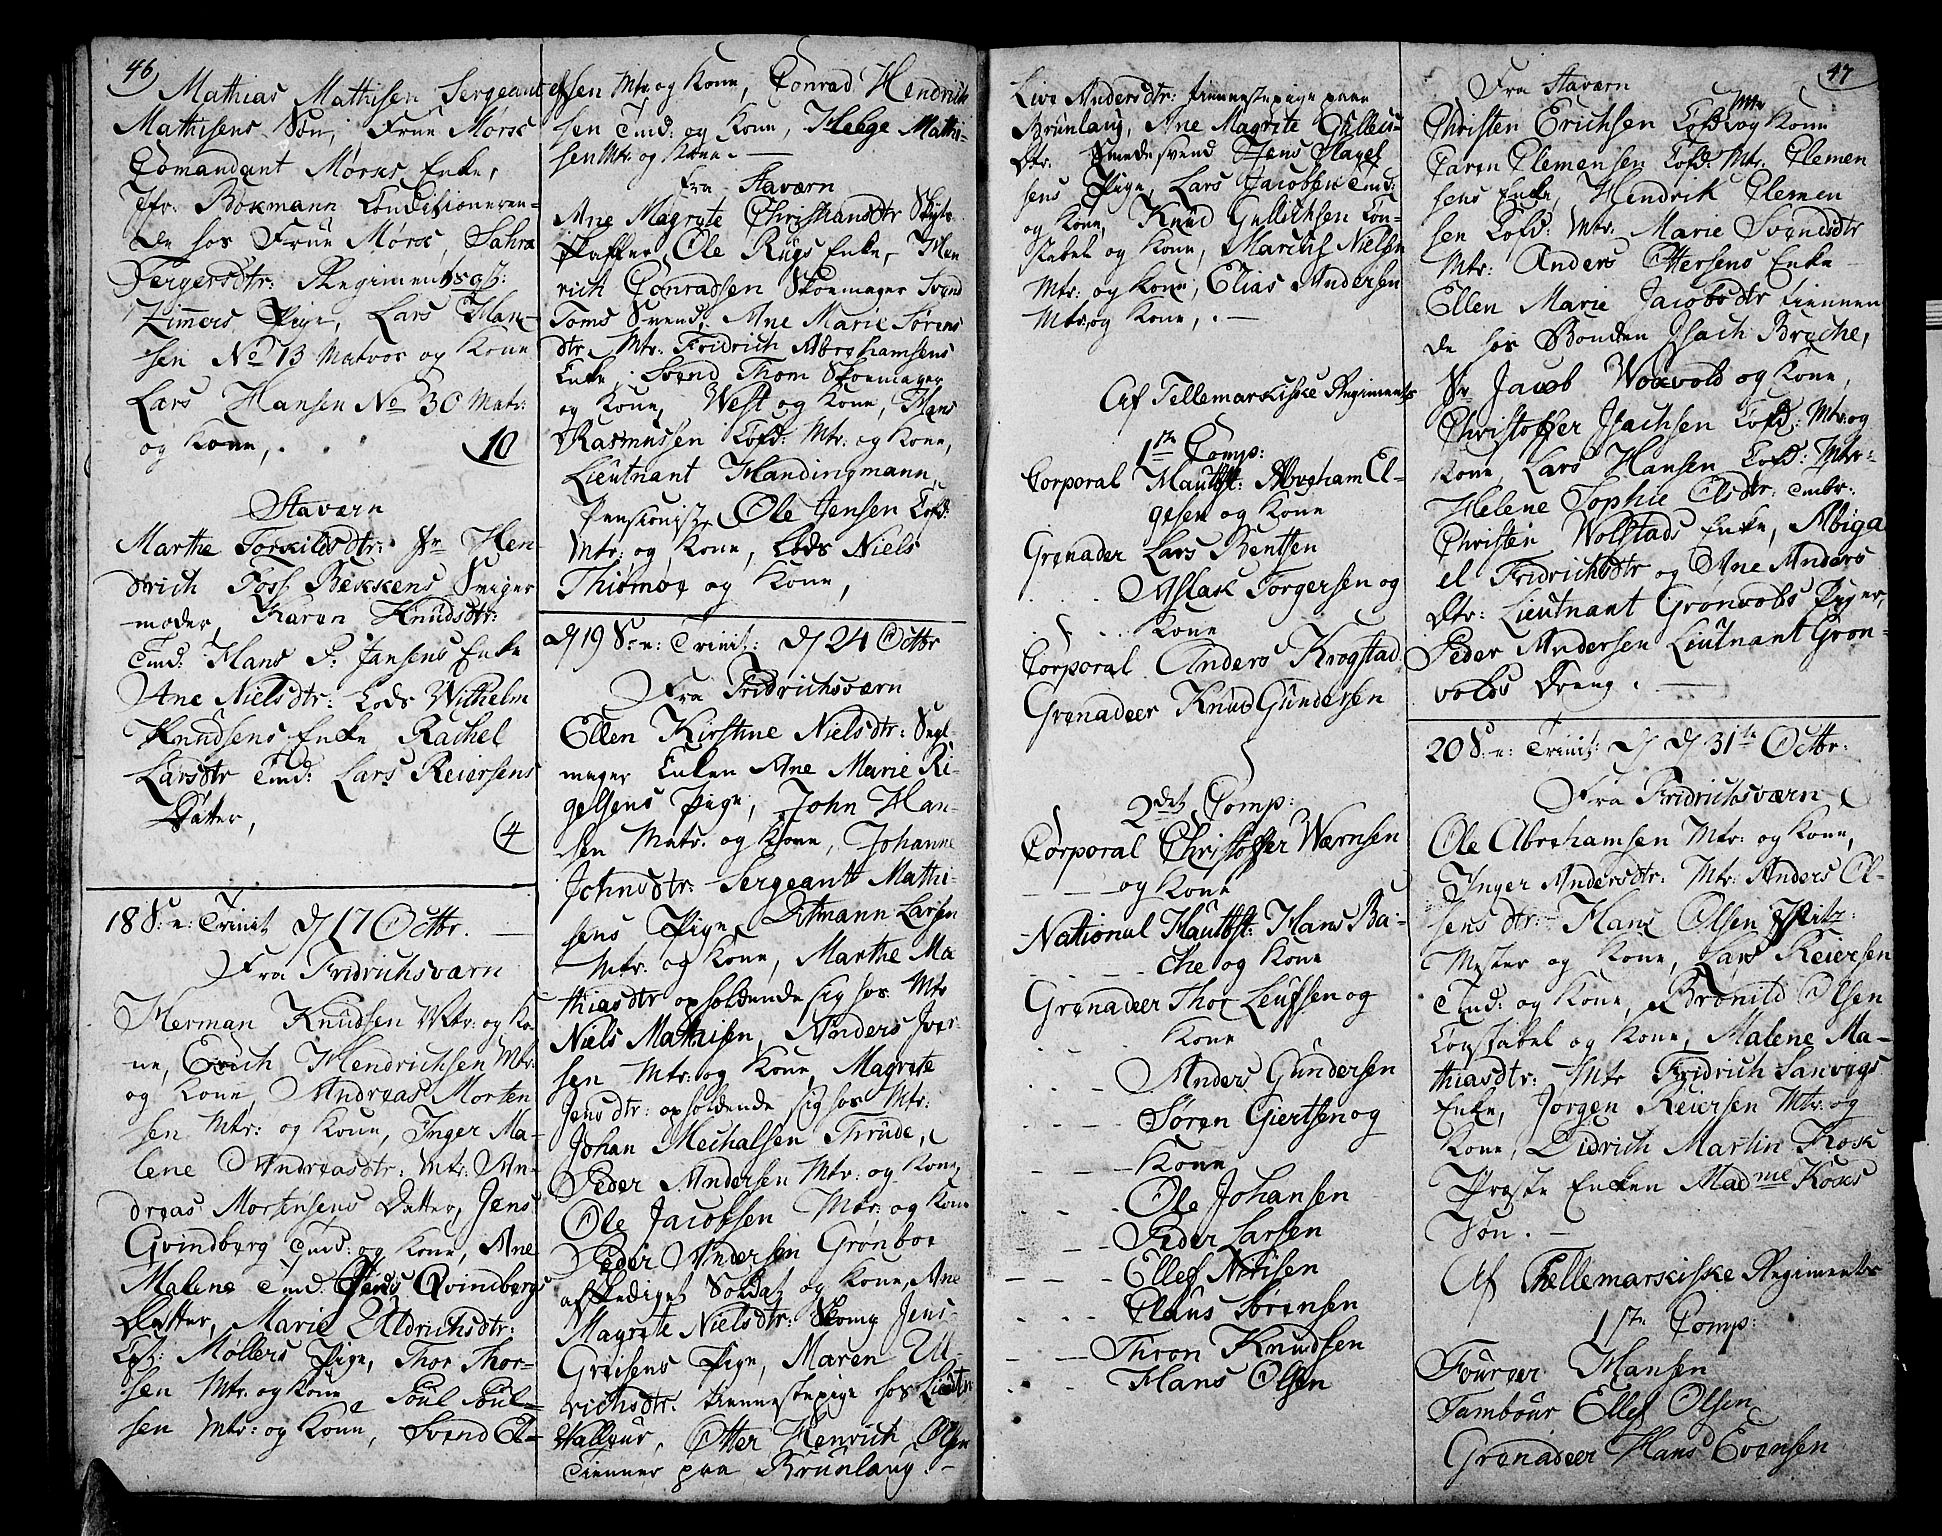 46
Mathias Mathisen Sergeant
Mathisens Søn, Frue Mørse
Comandant Mørses Enke,
Jfr: Bokmann Conditioneren-
de hos Frue Mørse, Sahra
Tergersdtr: Regiments
Zimmers Pige, Lars Han-
sen No 13 Matros og Kone
Lars Hansen No 30 Matr:
og Kone,
10
Staværn
Marthe Torkildsdtr: Sr Hen-
drich Foss Bekkens Sviger
moder, Karen Knudsdtr:
Tmd: Hans P: Jansens Enke
Ane Nielsdtr: Lods Wilhelm
Knudsens Enke Rachel
Larsdtr Tmd: Lars Reiersens
Datter,
4
18 S: e: Trinit d 17 Octbr.
Fra Fridrichsværn
Herman Knudsen Mtr: og Ko-
ne, Erich Hendrichsen Mtr:
og Kone, Andreas Morten
sen Mtr: og Kone, Inger Ma-
lene Andreasdtr: Mtr: An-
dreas Mortensens Datter, Jens
Qvindberg Tmd: og Kone, Ane
Malene Tmd. Jens Qvindbergs
Datter, Marie Uldrichsdtr:
Cpt: Møllers Pige, Thor Thor-
sen Mtr. og Kone Poul Poul-
sen Mtr: og Kone, Svend El-
efsen Mtr, og Kone, Conrad Hendrich
sen Tmd: og Kone, Helge Mathi-
sen Mtr: og Kone.
Fra Staværn
Ane Magrete Christiansdtr
skaffer Ole Rugs Enke, Hen
rich Conradsen Skoemager Svend
Toms Svend, Ane Marie Sørens
dtr Mtr: Fridrich Abrahamsens
Enke, Svend Thom Skoemager
og Kone, West og Kone, Hans
Rasmussen Cofd: Mtr: og Kone,
Lieutnant Handingmann,
Pensionist Ole Jensen Cofd:
Mtr: og Kone, Lods Niels
Thiømøe og Kone,
d 19 S: e: Trinit: d 24 Octbr
Fra Fridrichsværn
Ellen Kirstine Nielsdtr: Segl-
mager Enken Ane Marie Ri-
gelsens Pige, John Han-
sen Matr. og Kone, Johanne
Johnsdtr: Sergeant Mathi-
sens Pige, Ditmann Larsen
Mtr. og Kone, Marthe Ma
thiasdtr opholdende sig hos Mtr
Niels Mathisen, Anders Iver
sen Mtr: og Kone, Magrete
Jensdtr: opholdende sig hos Mtr:
Johan Mechalsen Thrude,
Peder Andersen Mtr: og Kone,
Ole Jacobsen Mtr: og Kone
Peder Andersen Grønboe
afskediget Soldat og Kone, Ane
Magrete Nielsdtr: Skomg Jens
Griisens Pige, Maren Ul-
richsdtr. tiennestepige hos Lieutn
Valleur, Otter Henrich Olsen
Tienner paa Brunlaug.
47
Live Andersdtr: tiennestepige paa
Brunlaug, Ane Magrete Gulleic-
dtr. Smedesvend Jens Olagef
sens Pige, Lars Jacobsen Tmd:
og Kone, Knud Gullichsen Con-
stabel og Kone, Marcus Nielsen
Mtr: og Kone, Elias Andersen
Mtr. og Kone,
Af Tellemarkiske Regiments
1ste Comp:
Corporal Mautbst: Abraham El-
gesen og Kone
Grenader Lars Bentsen
Aslak Torgersen og
Kone
Corporal Anders Krogstad
Grenadeer Knud Gundersen
2det Comp:
Corporal Christoffer Wærnsen
og Kone
National Mautbst: Hans Ba-
che og Kone
Grenadeer Thor Leufsen og
Kone
Anders Gundersen
Søren Giertsen og
Kone
Ole Johansen
Peder Larsen
Ellef Nirisen
Claus Sørensen
Thron Knudsen
Hans Olsen
Fra Staværn
Christen Erichsen Cofd: Mtr og Kone
Caren Clemensen Cofd: Mtr. Clemen
sens Enke, Hendrik Clemen
sen Cofd: Mtr. Marie Svendsdtr
Mtr: Anders Ottersens Enke
Ellen Marie Jacobsdtr tiennen
de hos Bonden Isach Breche,
Sr Jacob Woxvold og Kone,
Christoffer Isachsen Cofd: Mtr. og
Kone, Lars Hansen Cofd: Mtr:
Helene Sophie Olsdtr: Tmbr:
Christen Wolstads Enke, Abiga
el Fridrichsdtr og Ane Anders
Dtr: Lieutnant Grønvolds Piger,
Peder Andersen Lieutnant Grøn-
volds Dreng.
20 S: e: Trinit: d 31te Octbr:
Fra Fridrichsværn
Ole Abrahamsen Mtr: og Kone,
Inger Andersdtr: Mtr: Anders Ol-
sens dtr: Hans Olsen Spitz:
Mester og Kone, Lars Reiersen
Tmd: og Kone, Brønild Olsen
Constabel og Kone, Malene Ma-
thiasdtr: Mtr Fridrich Sanvigs
Enke, Jørgen Reiersen Mtr: og
Kone, Didrich Martin Kosk
Præste Enken Madme Koses
Søn.
Af Thellemarkiske Regimente
1ste Comp:
Foureer Hansen
Tambour Ellef Olsen
Grenadeer Hans Evensen